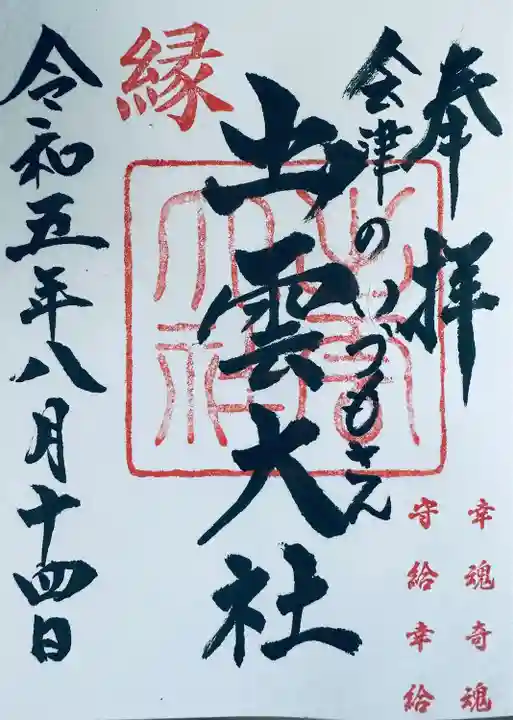 奉拝
会津のいづもさん
出雲大社
縁
令和五年八月十四日
幸魂奇魂
守給幸給